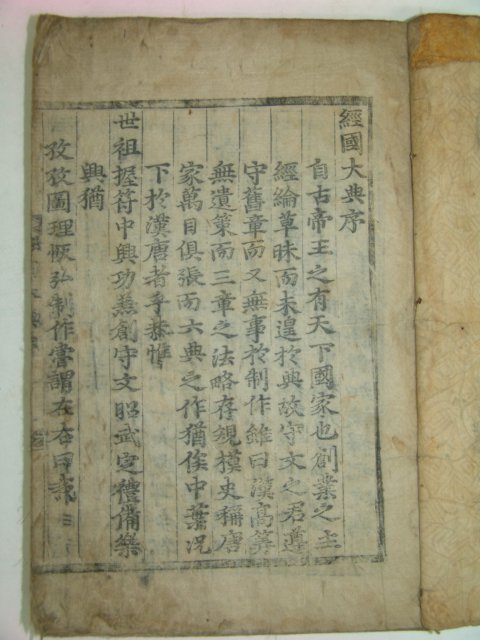 經國大典序
自古帝王之有天下國家也創業之主
經綸草昧而未遑於典故守文之君遵
守舊章而又無事於制作雖曰漢高筭
無遺策而三章之法略存規模史稱唐
家萬目俱張而六典之作猶俟中葉况
下於漢唐者乎恭惟
世祖握符中興功兼創守文昭武定禮備樂
興猶
孜孜圖理恢弘制作嘗謂左右曰我